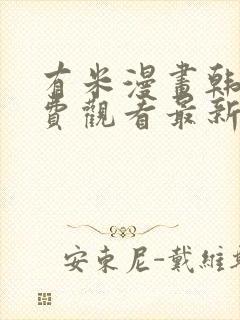 有米漫畫韩
費觀看最新
安東尼-戴維斯